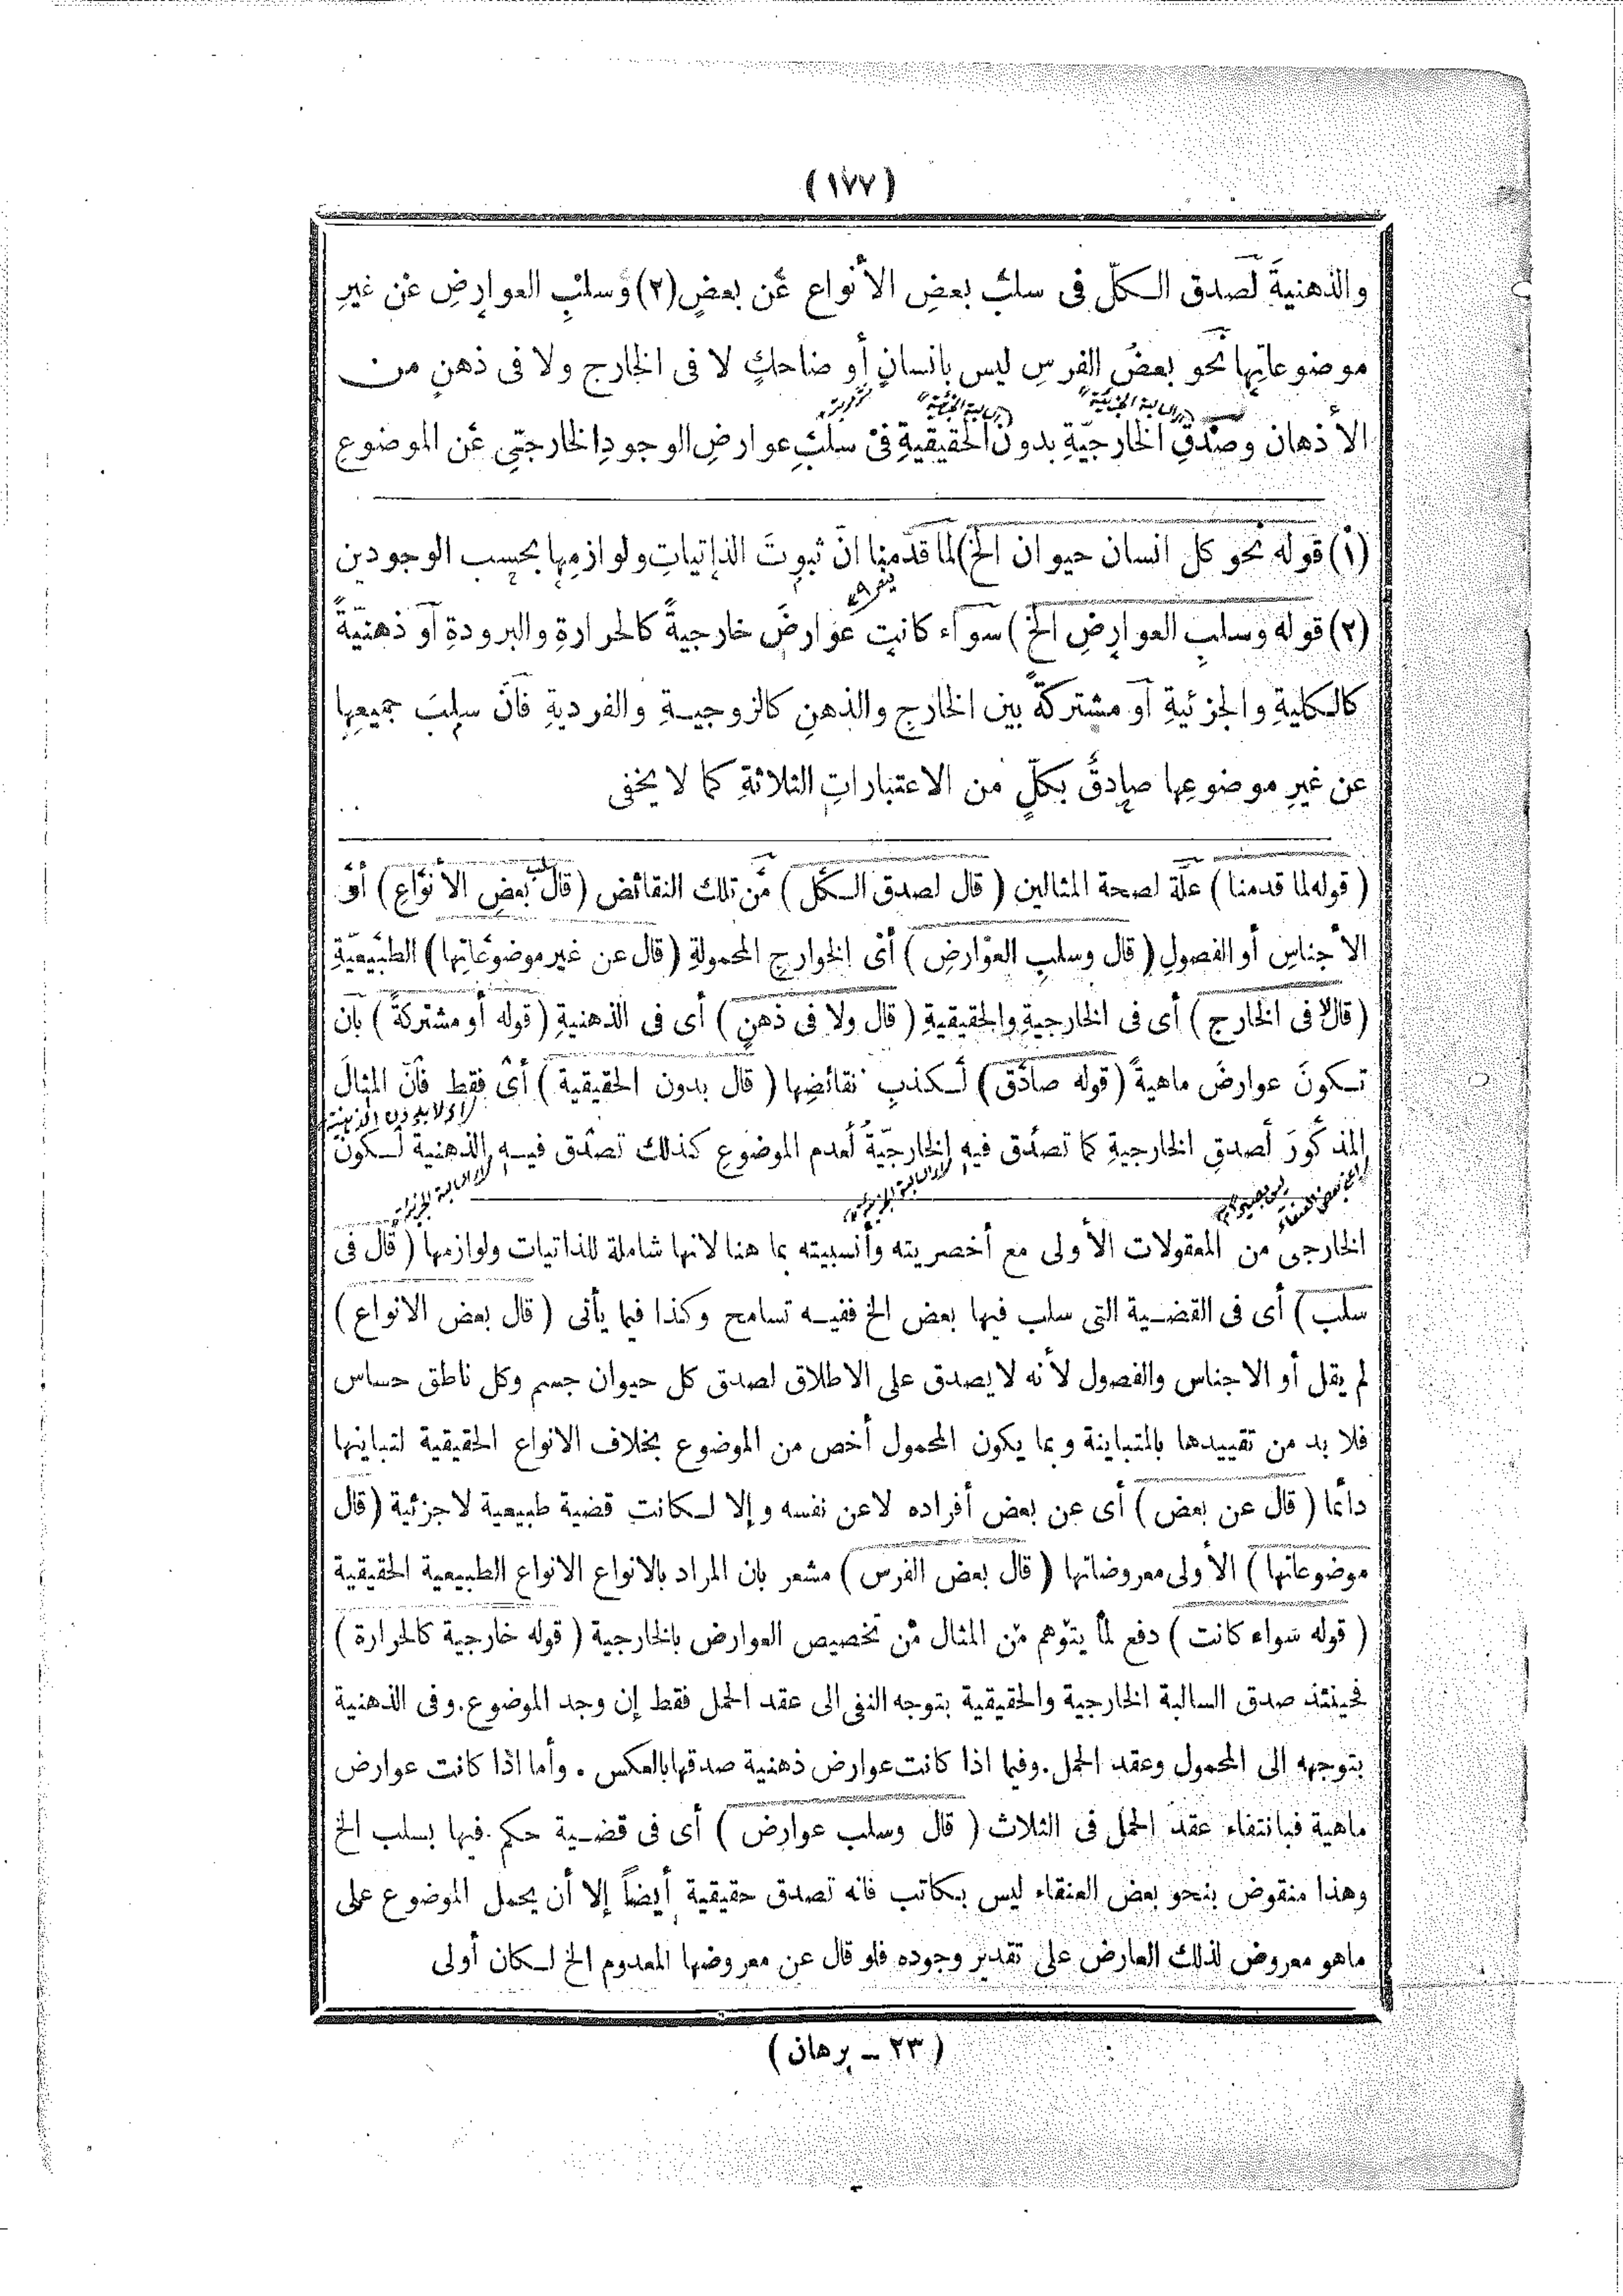 (١٧٧)
والذهنيةَ لصدق الكلّ فى سلب بعضِ الأنواع عن بعضٍ (٢) وسلبِ العوارضِ عن غيرِ
موضوعاتِها نحو بعضُ الفرسِ ليس بانسانٍ أو ضاحكٍ لا فى الخارج ولا فى ذهنٍ من
(السالبة الجزئية) (السالبة الجزئية)
الأذهان وصدقِ الخارجيّةِ بدون الحقيقيةِ فى سلبِ عوارضِ الوجودِ الخارجىّ عن الموضوعِ
(١) قوله نحو كل انسان حيوان الخ) لما قدّمنا انّ ثبوتَ الذاتياتِ ولوازمِها بحسب الوجودين
(٢) قوله وسلبِ العوارضِ الخ) سوآء كانت عوارضَ خارجيةً كالحرارةِ والبرودةِ آو ذهنيّةً
كالكليةِ والجزئيةِ آو مشتركةً بين الخارجِ والذهنِ كالزوجيةِ والفرديةِ فانّ سلبَ جميعِها
عن غيرِ موضوعِها صادقٌ بكلٍّ من الاعتباراتِ الثلاثةِ كما لا يخفى
(قوله لما قدمنا) علّة لصحة المثالين (قال لصدق الكل) من تلك النقائض (قال بعضِ الأنواعِ) أو
سلب
الأجناسِ أو الفصولِ (قال وسلبِ العوارضِ) أى الخوارجِ المحمولةِ (قال عن غير موضوعاتِها) الطبيعيّةِ
(قال لا فى الخارج) أى فى الخارجيةِ والحقيقيةِ (قال ولا فى ذهنٍ) أى فى الذهنيةِ (قوله أو مشتركةً) بان
تكونَ عوارضَ ماهيةً (قوله صادق) لكذبِ نقائضِها (قال بدون الحقيقية) أى فقط فانّ المثالَ
اى لا بدون الذهنية
المذكورَ لصدقِ الخارجيةِ كما تصدق فيه الخارجيّةُ لعدم الموضوعِ كذلك تصدق فيه الذهنية لكون
الخارجى من المعقولات الأولى مع أخصريته وأنسبيته بما هنا لانها شاملة للذاتيات ولوازمها (قال فى
سلب) أى فى القضية التى سلب فيها بعض الخ ففيه تسامح وكذا فيما يأتى (قال بعض الانواع)
لم يقل أو الاجناس والفصول لأنه لا يصدق على الاطلاق لصدق كل حيوان جسم وكل ناطق حساس
فلا بد من تقييدها بالمتباينة وبما يكون المحمول أخص من الموضوع بخلاف الانواع الحقيقية لتباينها
دائما (قال عن بعض) أى عن بعض أفراده لاعن نفسه وإلا لكانت قضية طبيعية لا جزئية (قال
موضوعاتها) الأولى معروضاتها (قال بعض الفرس) مشعر بان المراد بالانواع الانواع الطبيعية الحقيقية
(قوله سواء كانت) دفع لما يتوهم من المثال من تخصيص العوارض بالخارجية (قوله خارجية كالحرارة)
فحينئذ صدق السالبة الخارجية والحقيقية بتوجه النفى الى عقد الحمل فقط إن وجد الموضوع. وفى الذهنية
بتوجهه الى المحمول وعقد الحمل. وفيما اذا كانت عوارض ذهنية صدقها بالعكس. وأما اذا كانت عوارض
ماهية فبانتفاء عقد الحمل فى الثلاث (قال وسلب عوارض) أى فى قضية حكم فيها بسلب الخ
وهذا منقوض بنحو بعض العنقاء ليس بكاتب فانه تصدق حقيقية أيضاً إلا أن يحمل الموضوع على
ماهو معروض لذلك العارض على تقدير وجوده فلو قال عن معروضها المعدوم الخ لكان أولى
(٢٣ - برهان)